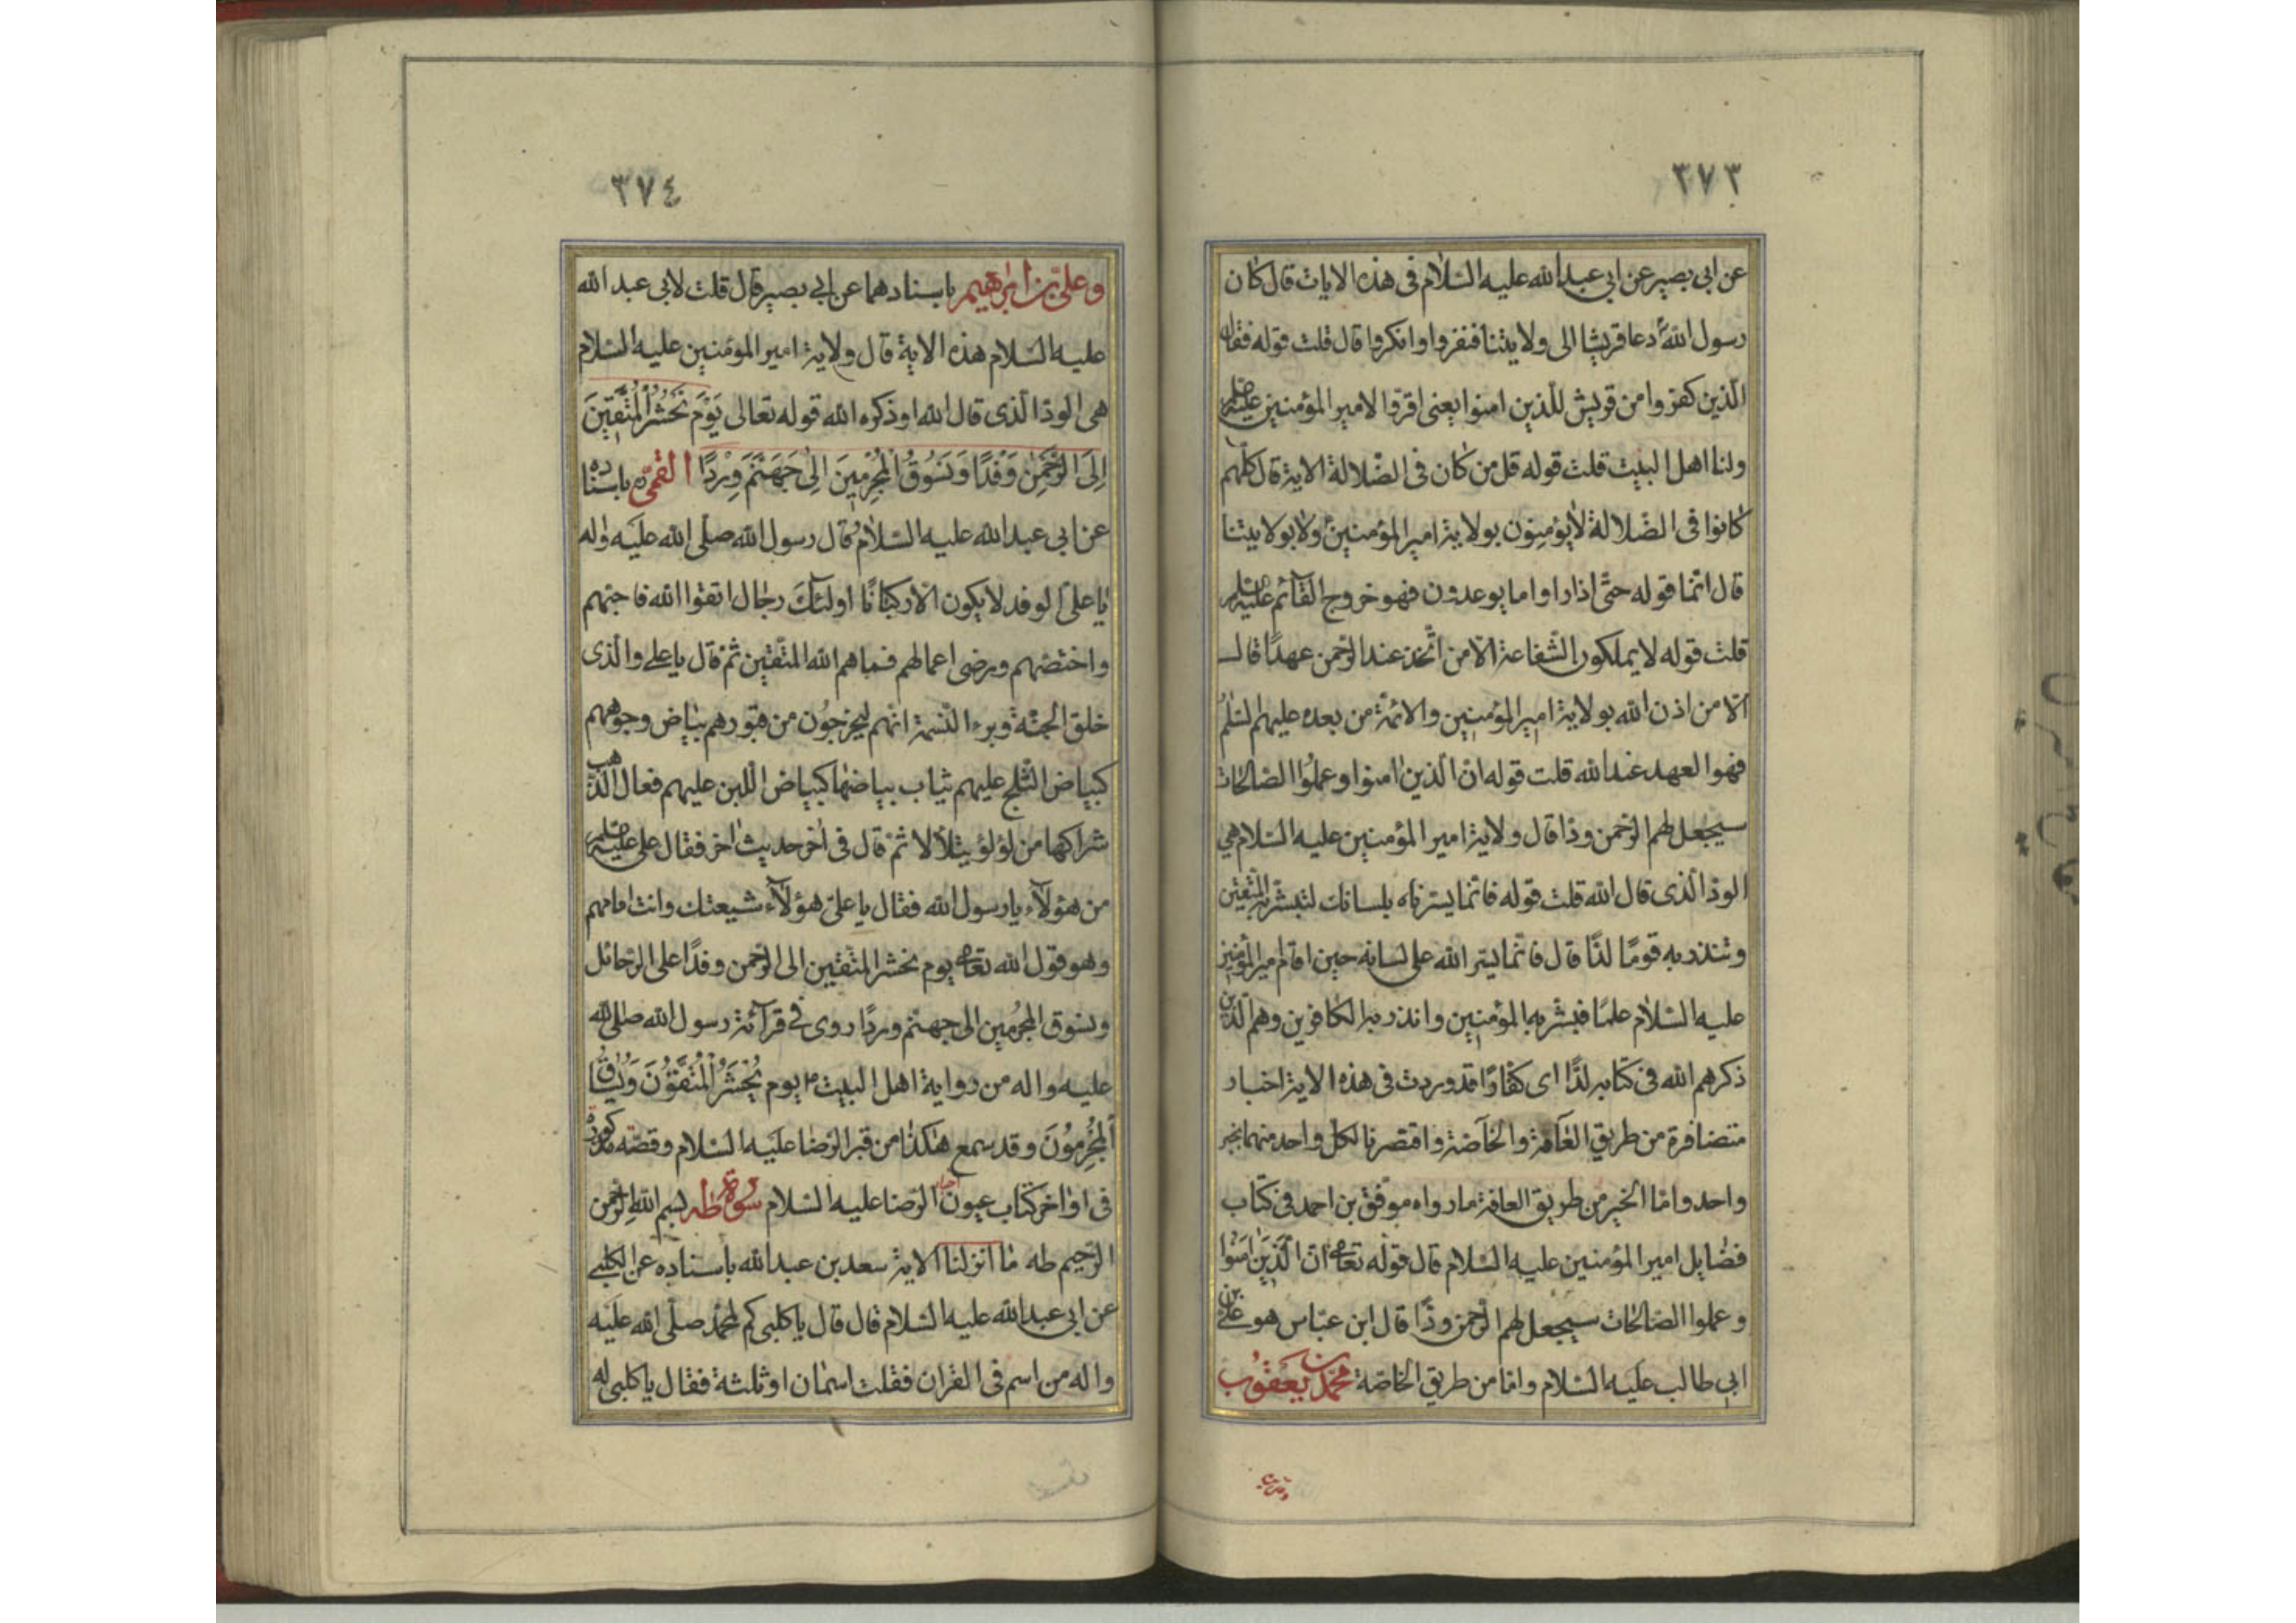 ٣٧٣
عن ابى بصير عن ابى عبدالله عليه السّلام فى هذه الايات قال كان
رسول الله دعا قريشا الى ولايتنا فنفروا وانكروا قال قلت قوله فقال
الّذين كفروا من قريش للّذين امنوا يعنى اقروا لامير المؤمنين عليه السلم
ولنا اهل البيت قلت قوله قل من كان فى الضّلالة الاية قال كلهم
كانوا فى الضّلالة لا يؤمنون بولاية امير المؤمنين ولا بولايتنا
قال امّا قوله حتّى اذا راوا ما يوعدون فهو خروج القآئم عليه السلم
قلت قوله لا يملكون الشّفاعة الّا من اتّخذ عند الرّحمن عهدًا قال
الّا من اذن الله بولاية امير المؤمنين والائمّة من بعده عليهم السّلم
فهو العهد عند الله قلت قوله انّ الّذين امنوا وعملوا الصّالحات
سيجعل لهم الرّحمن ودّا قال ولاية امير المؤمنين عليه السّلام هي
الودّ الّذى قال الله قلت قوله فانّما يسّرناه بلسانك لتبشّر به المتّقين
وتنذر به قومًا لدّا قال فانّما يسّر الله على لسانه حين اقام امير المؤمنين
عليه السّلام علمًا فبشّر به المؤمنين وانذر به الكافرين وهم الّذين
ذكرهم الله فى كتابه لدًّا اى كفّارًا قد وردت فى هذه الاية اخبار
متضافرة من طريق العآمّة والخآصّة واقتصرنا لكل واحد منهما بخبر
واحد وامّا الخبر من طريق العامّة ما رواه موفّق بن احمد فى كتاب
فضايل امير المؤمنين عليه السّلام قال قوله تعالى انّ الّذين امنوا
وعملوا الصّالحات سيجعل لهم الرّحمن ودًّا قال ابن عبّاس هو علىّ بن
ابى طالب عليه السّلام وامّا من طريق الخاصّة محمّد بن يعقوب
٣٧٤
وعلىّ بن ابراهيم باسنادهما عن ابى بصير قال قلت لابى عبد الله
عليه السّلام هذه الاية قال ولاية امير المومنين عليه السّلام
هى الودّ الّذى قال الله او ذكره الله قوله تعالى يَوْمَ نَحْشُرُ الْمُتَّقِينَ
اِلَى الرَّحْمٰنِ وَفْدًا وَنَسُوقُ الْمُجْرِمِينَ اِلىٰ جَهَنَّمَ وِرْدًا القمىّ باسناده
عن ابى عبدالله عليه السّلام قال رسول الله صلّى الله عليه واله
يا علىّ الوفد لا يكون الّا ركبانًا اولئك رجال اتقوا الله فاحبّهم
واختصّهم ورضى اعمالهم فسماهم الله المتّقين ثمّ قال يا على والّذى
خلق الحبّة وبرء النّسمة انّهم ليخرجون من قبورهم بياض وجوههم
كبياض الثّلج عليهم ثياب بياضها كبياض اللّبن عليهم فعال الذّهب
شراكها من لؤلؤ يتلألا ثمّ قال فى اخر حديث اخر فقال على عليه السلم
من هؤلآء يا رسول الله فقال يا علىّ هؤلآء شيعتك وانت امامهم
وهو قول الله تعالى يوم نحشر المتّقين الى الرّحمن وفدًا على الرّحائل
ونسوق المجرمين الى جهنّم وردًا روى فى قرآئة رسول الله صلى الله
عليه واله من رواية اهل البيت يوم يُحْشَرُ الْمُتَّقُونَ وَيُسٰاقُ
الْمُجْرِمُونَ وقد سمع هكذا من قبر الرّضا عليه السّلام وقصّته مذكورة
فى اواخر كتاب عيون اخبار الرّضا عليه السّلام سورة طه بسم الله الرّحمن
الرّحيم طه ما انزلنا الاية سعد بن عبدالله باسناده عن الكلبى
عن ابى عبدالله عليه السّلام قال قال يا كلبى كم لمحمّد صلّى الله عليه
واله من اسم فى القران فقلت اسمان او ثلثة فقال يا كلبى له